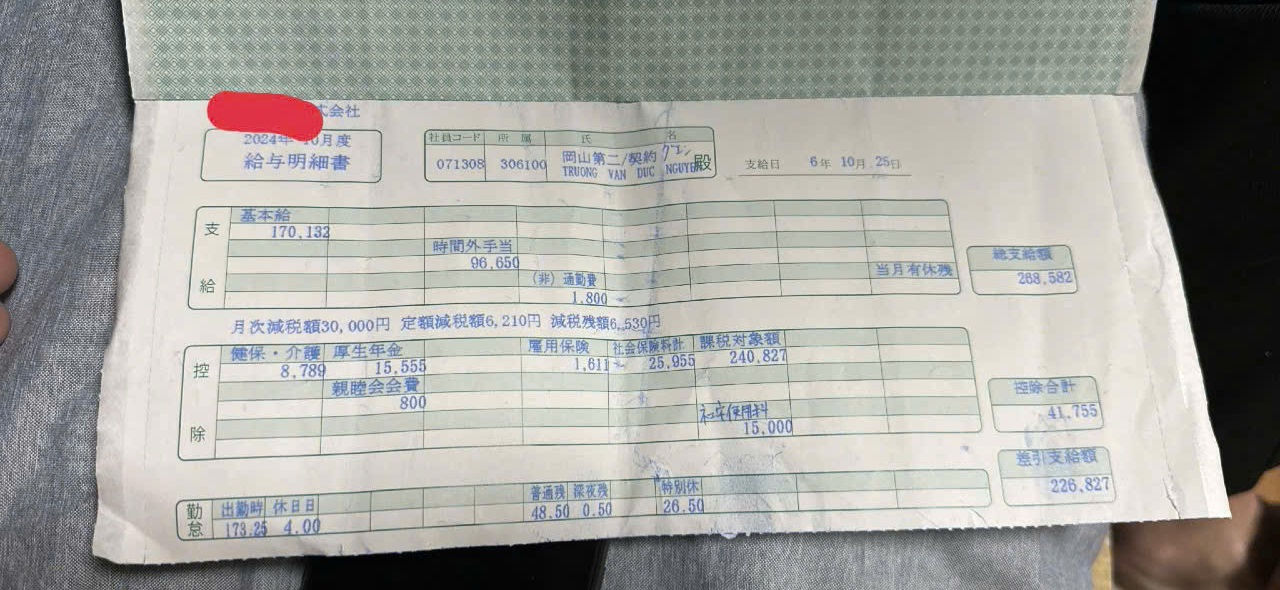 式会社
2024年 10月度
給与明細書
社員コード 所属 氏名
071308 306100 岡山第二/契約 グエン
TRUONG VAN DUC NGUYEN 殿
支給日 6年 10月 25日
支給
基本給
170,132
時間外手当
96,650
(非) 通勤費
1,800
当月有休残
総支給額
268,582
月次減税額30,000円 定額減税額6,210円 減税残額6,530円
控除
健保・介護 厚生年金 雇用保険 社会保険料計 課税対象額
8,789 15,555 1,611 25,955 240,827
親睦会会費
800
社宅使用料
15,000
控除合計
41,755
差引支給額
226,827
勤怠
出勤時 休日日 普通残 深夜残 特別休
173.25 4.00 48.50 0.50 26.50